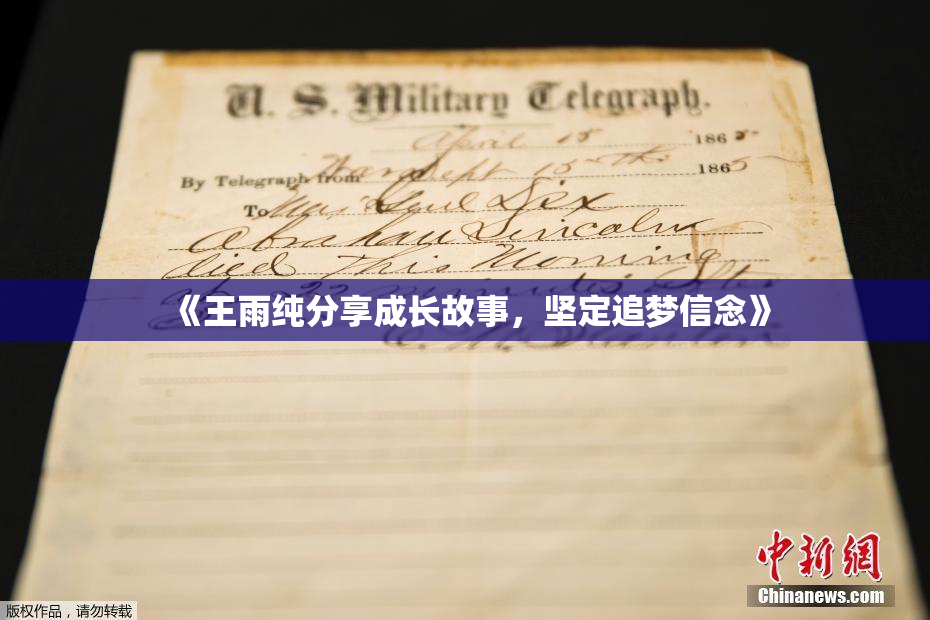 U. S. Military Telegraph.
April 15 1865
By Telegraph from War Dept 15th 1865
To Maj Genl Dix
Abraham Lincoln
died This Morning
at 22 minutes after
《王雨纯分享成长故事，坚定追梦信念》
E. M. Stanton
中新網
Chinanews.com
版权作品，请勿转载